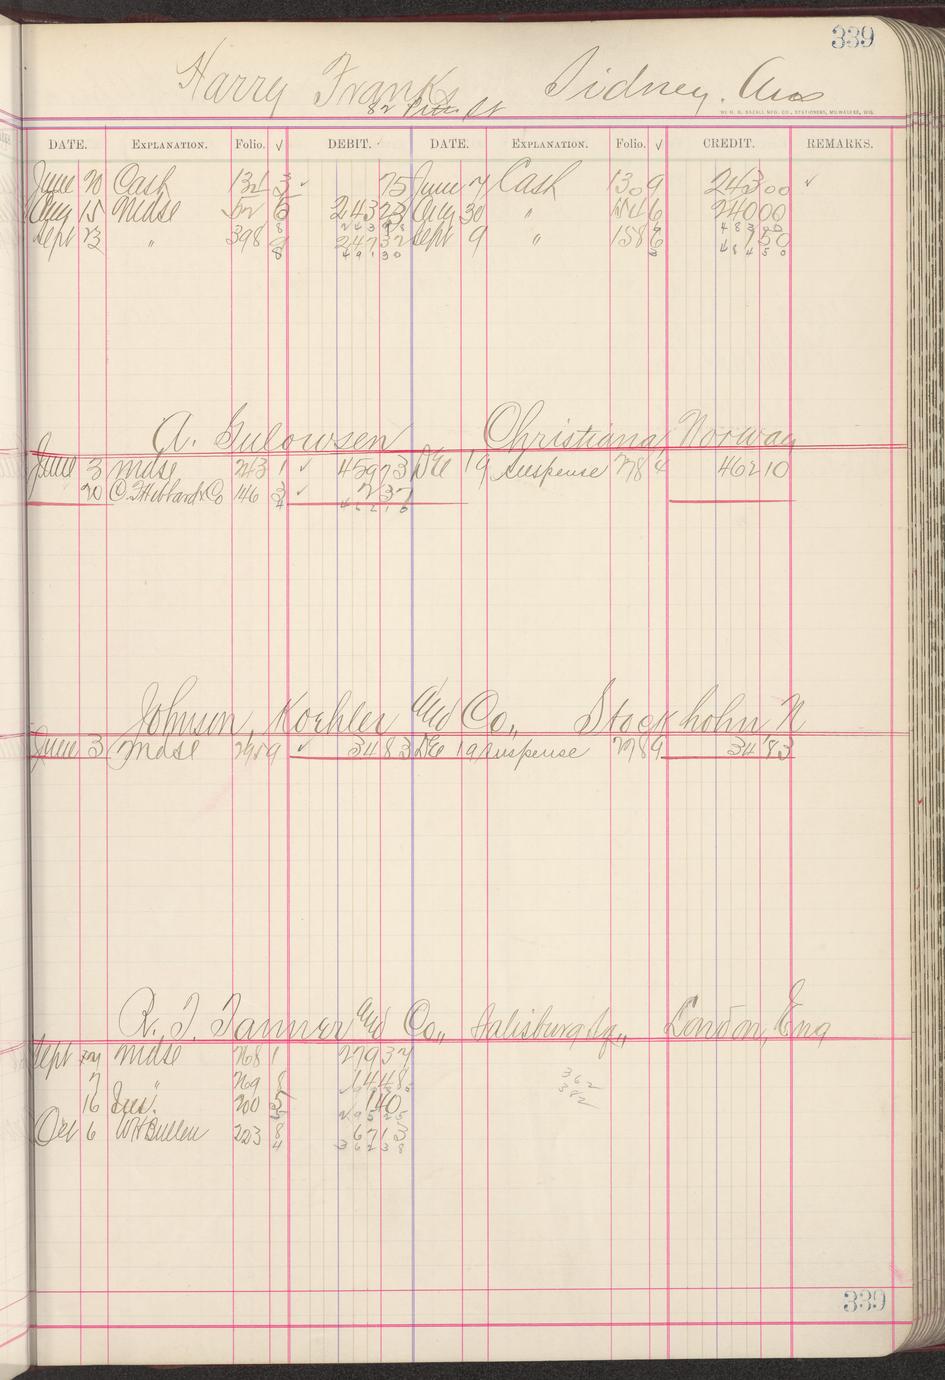 339
Harry Franks Sidney. Aus
82 Pitt St
DATE. EXPLANATION. Folio. √ DEBIT. DATE. EXPLANATION. Folio. √ CREDIT. REMARKS.
June 20 Cash 132 3 ✓ 75 June 7 Cash 130 9 243 00 ✓
Aug 15 Mdse 52 5 243 23 Aug 30 " 154 6 240 00
Sept 23 " 398 9 247 32 Sept 9 " 158 6 1 50
4 9 1 3 0 4 8 4 5 0
A. Gulowsen Christiana, Norway
June 3 Mdse 243 1 ✓ 459 73 Dec 19 Suspense 278 4 462 10
20 C. F. Hibbard & Co 146 3 ✓ 2 37
4 6 2 1 0
Johnson, Koehler and Co., Stockholm N
June 3 Mdse 9 ✓ 34 83 Dec 19 Suspense 278 9 34 83
R. J. Tanner and Co., Salisbury Sq., London, Eng
Sept Mdse 268 1 279 37
7 " 269 8 14 48
16 Ins. 200 5 1 40
2 9 5 2 5
Oct 6 WH Bullen 223 8 67 13
3 6 2 3 8
362
382
339